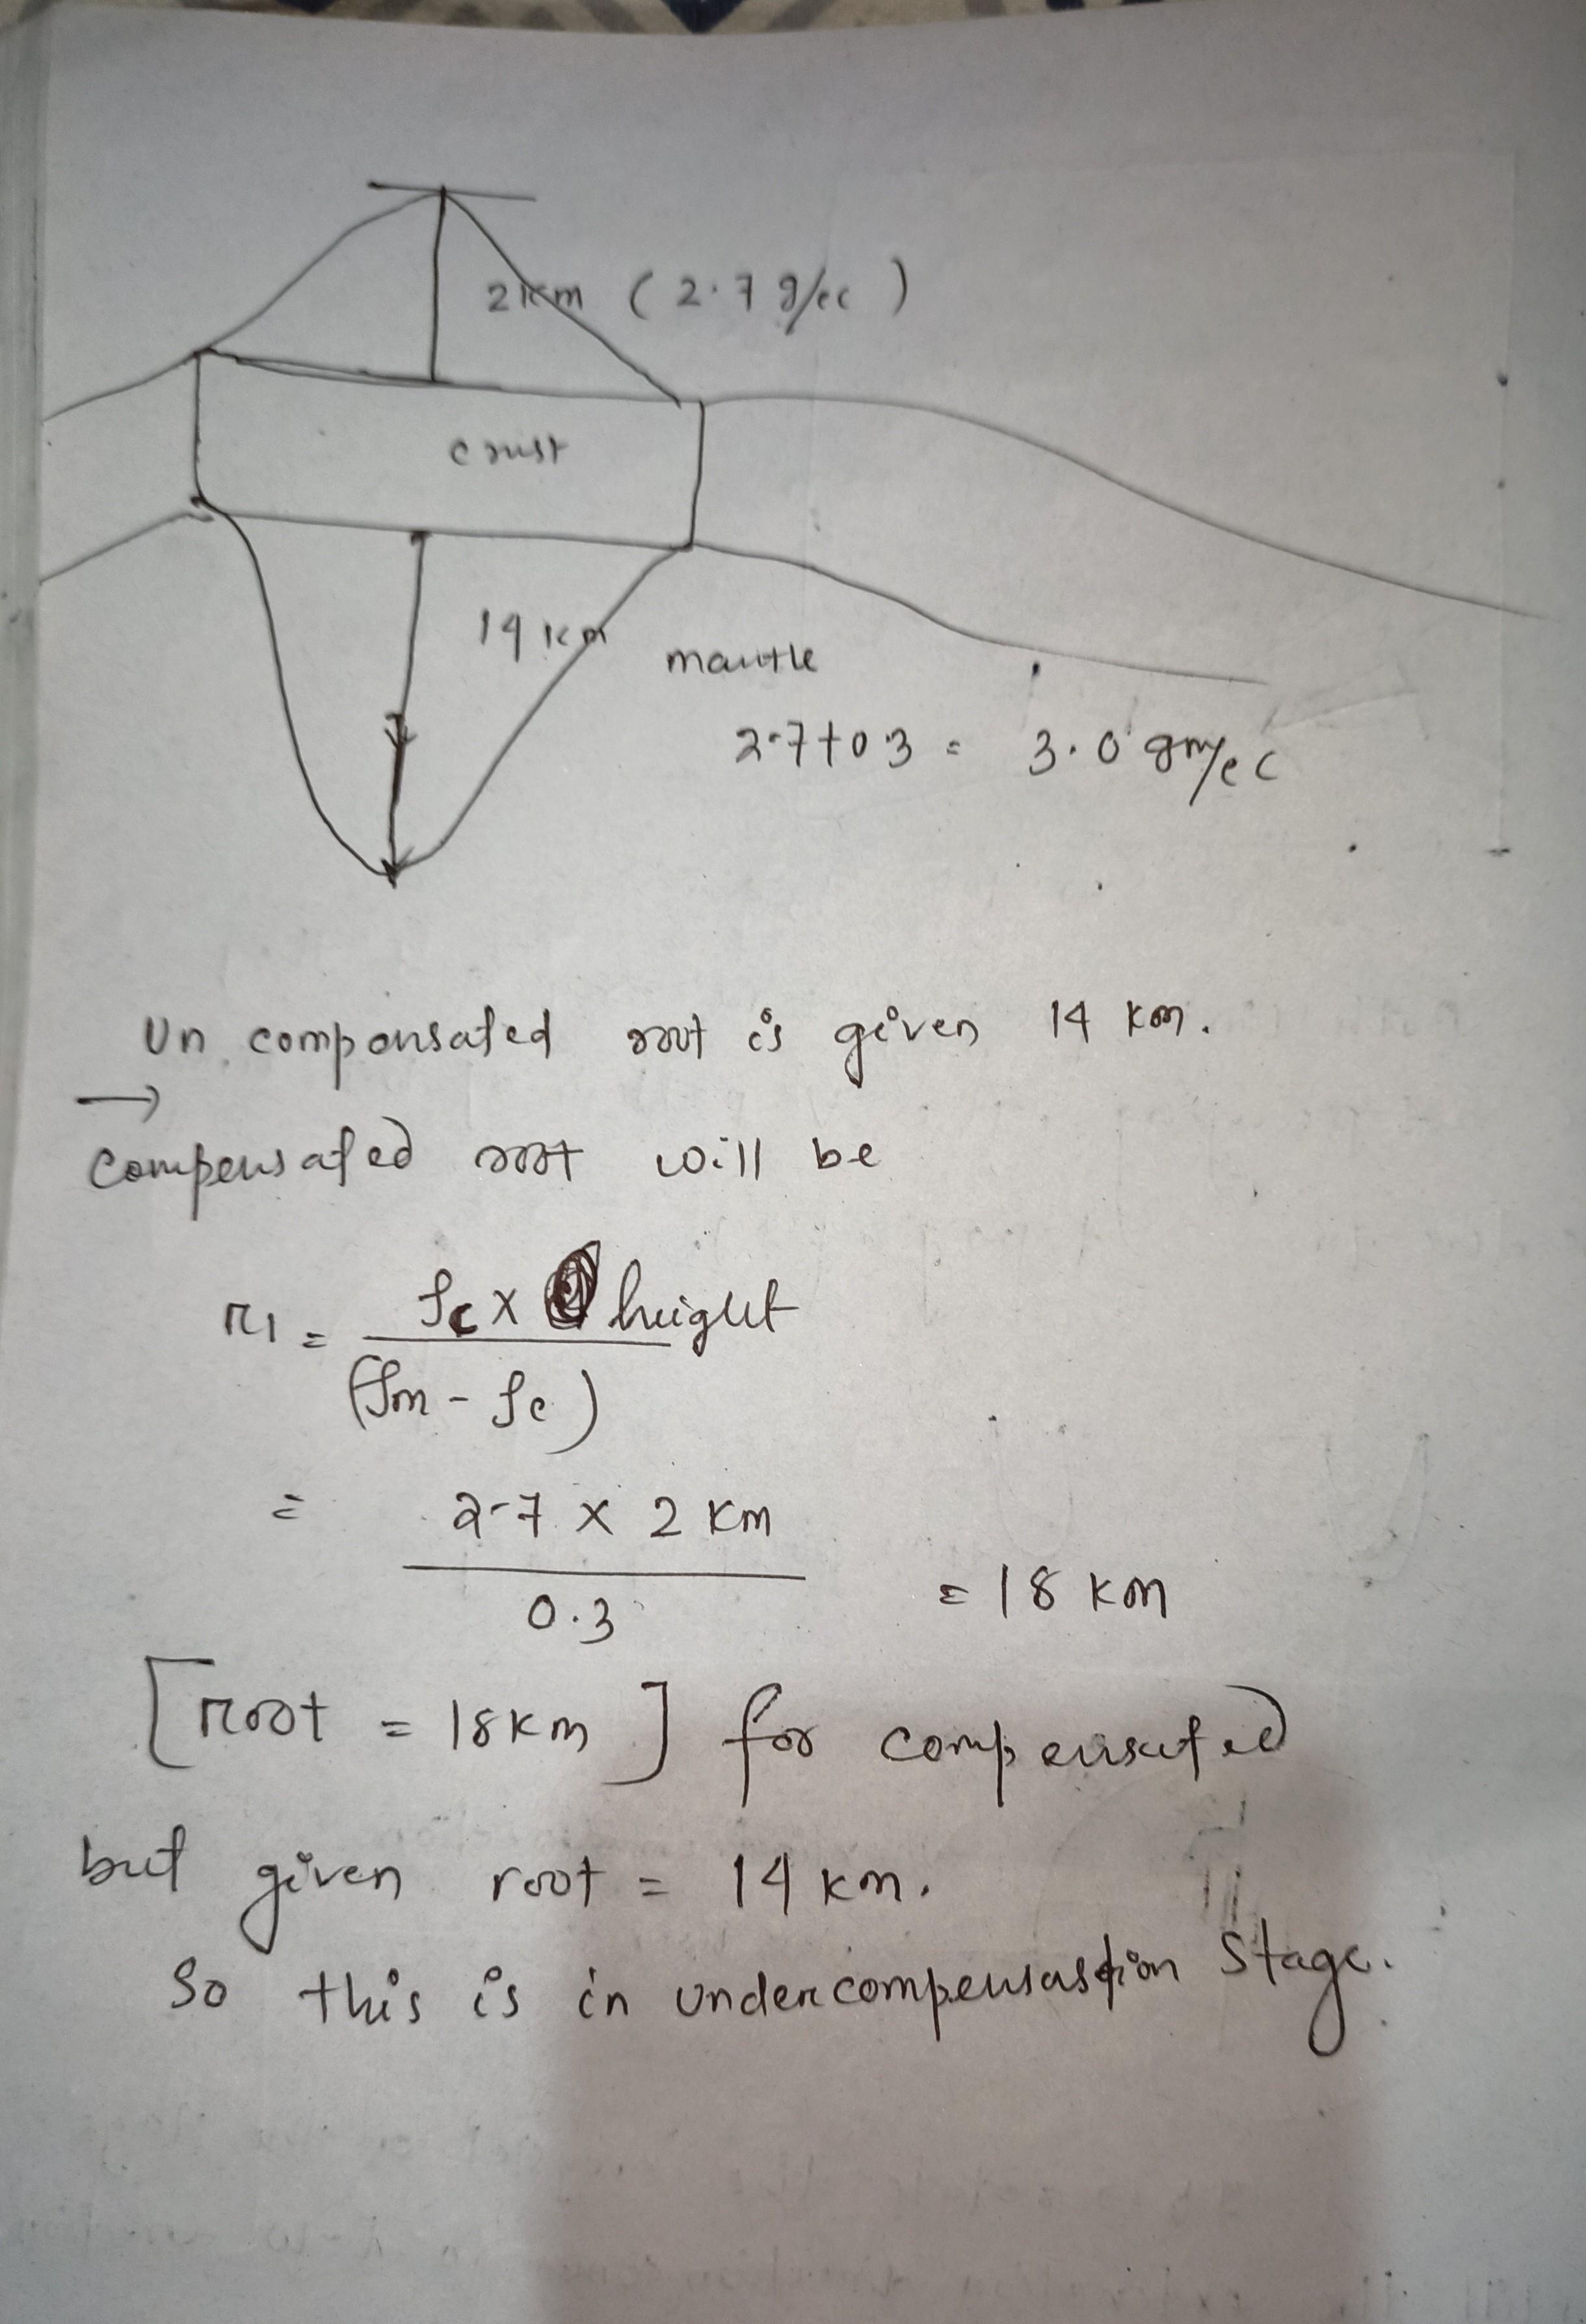 2km ( 2.7 g/cc )
crust
14 km
mantle
2.7+0.3 = 3.0 gm/cc
Un compensated root is given 14 km.
→
compensated root will be
r1 = ρc x height
(ρm - ρc)
= 2.7 x 2 km
0.3
= 18 km
[root = 18km] for compensated
but given root = 14 km.
So this is in undercompensastion stage.